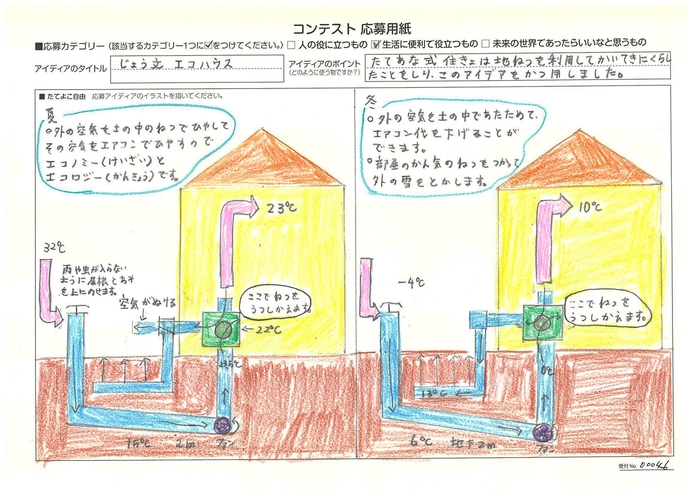 コンテスト 応募用紙
■応募カテゴリー（該当するカテゴリー1つに☑をつけてください。）□ 人の役に立つもの ☑ 生活に便利で役立つもの □ 未来の世界であったらいいなと思うもの
アイディアのタイトル じょう文 エコハウス
アイディアのポイント
（どのように使う物ですか？）
たてあな式 住きょは地ねつを利用してかいてきにくらし
たことをしり、このアイデアをかつ用しました。
■たてよこ自由 応募アイディアのイラストを描いてください。
夏
○外の空気を土の中のねつでひやして
その空気をエアコンでひやすので
エコノミー(けいざい)と
エコロジー(かんきょう)です。
23℃
32℃
雨や虫が入らない
ように屋根とあみ
を上にのせます。
空気がぬける
ここでねつを
うつしかえます。
←22℃
15℃ 2m ファン
冬
○外の空気を土の中であたためて、
エアコン代を下げることが
できます。
○部屋のかん気のねつをつかって
外の雪をとかします。
10℃
-4℃
ここでねつを
うつしかえます。
0℃
13℃
6℃ 地下2m ファン
受付No. 00046